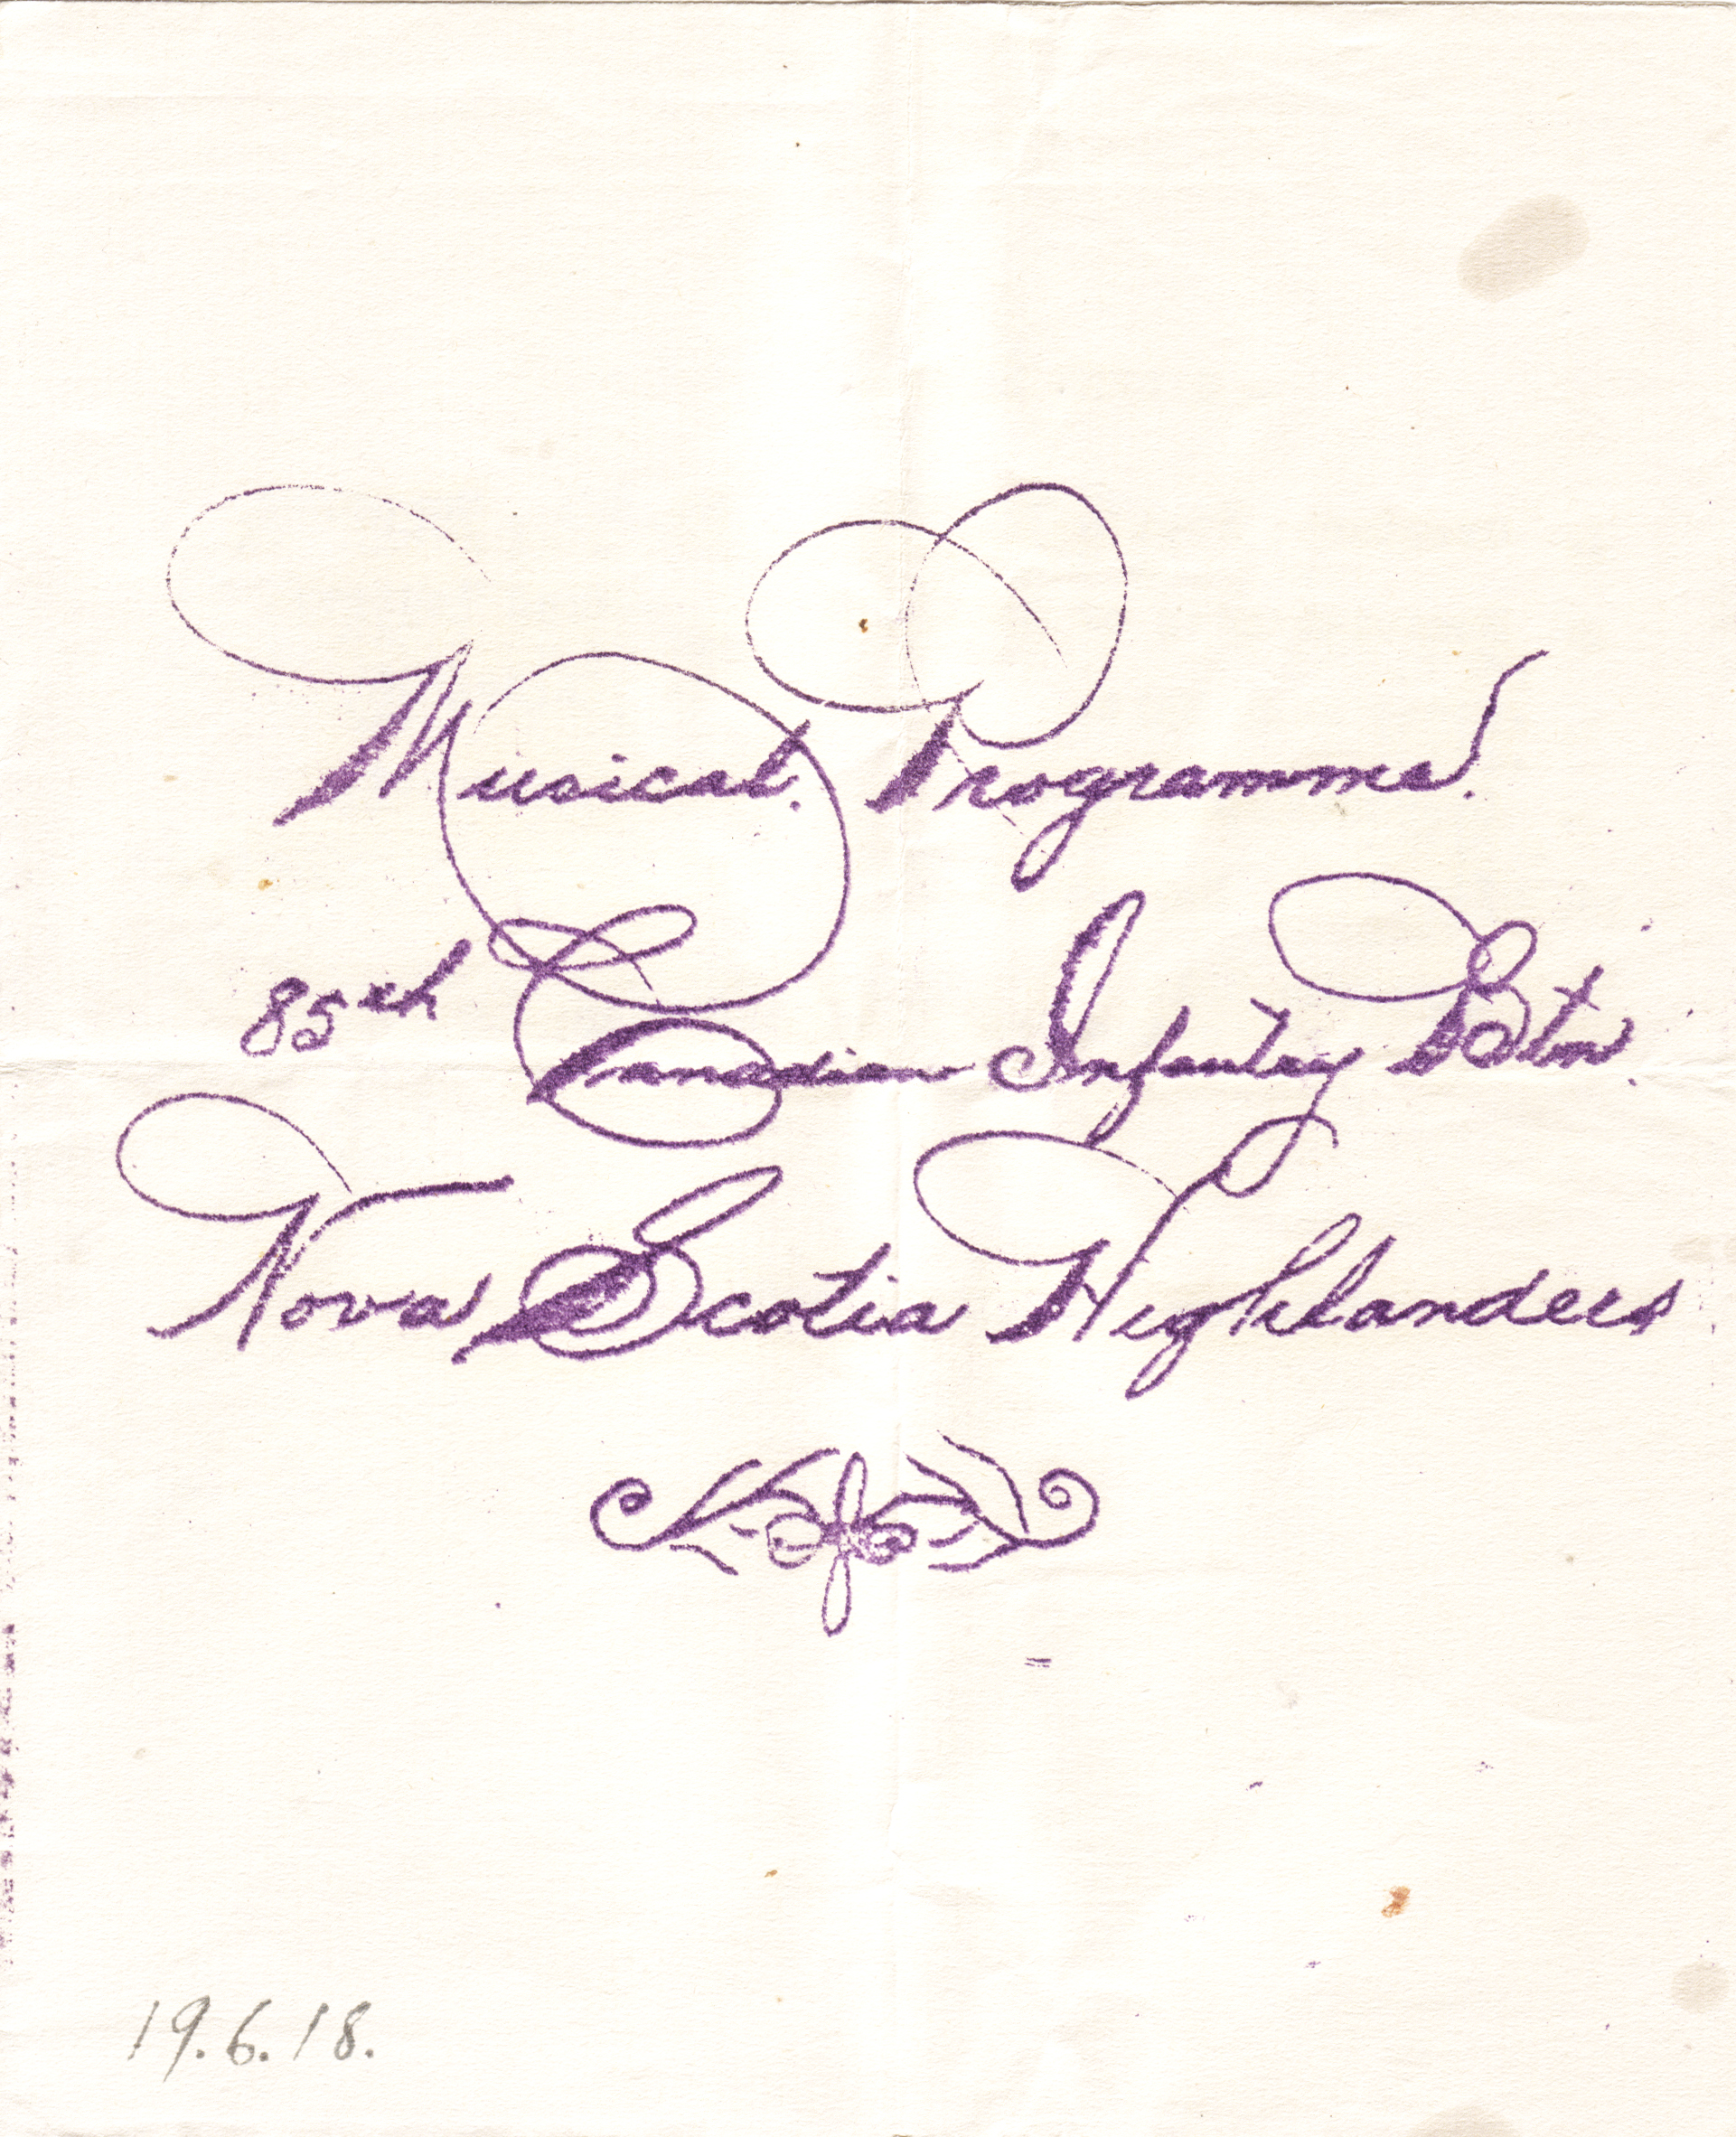 Musical. Programme.
85th Canadian Infantry Batn.
Nova Scotia Highlanders
19.6.18.